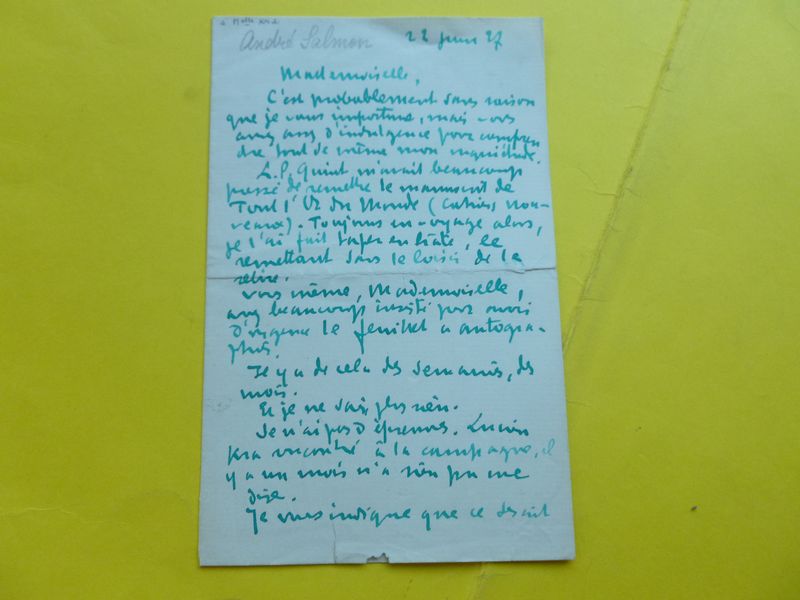 André Salmon 22 juin 27
Mademoiselle,
C'est probablement sans raison
que je vous importune, mais vous
avez assez d'indulgence pour compren
dre tout de même mon inquiétude.
L.P. Quint m'avait beaucoup
pressé de remettre le manuscrit de
Tout l'Or du Monde (Cahiers nou-
veaux). Toujours en voyage alors,
je l'ai fait taper en hâte, le
remettant sans le loisir de le
relire.
Vous même, Mademoiselle,
avez beaucoup insisté pour avoir
d'urgence le feuillet à autogra-
phier.
Il y a de cela des semaines, des
mois.
Et je ne sais plus rien.
Je n'ai pas d'épreuves. Lucien
rencontré à la campagne, il
y a un mois n'a rien pu me
dire.
Je vous indique que ce serait